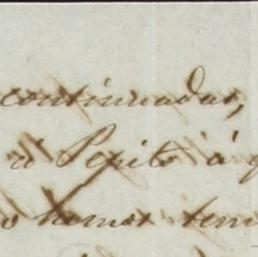 continuadas,
a Pepito á q
o hemos teni